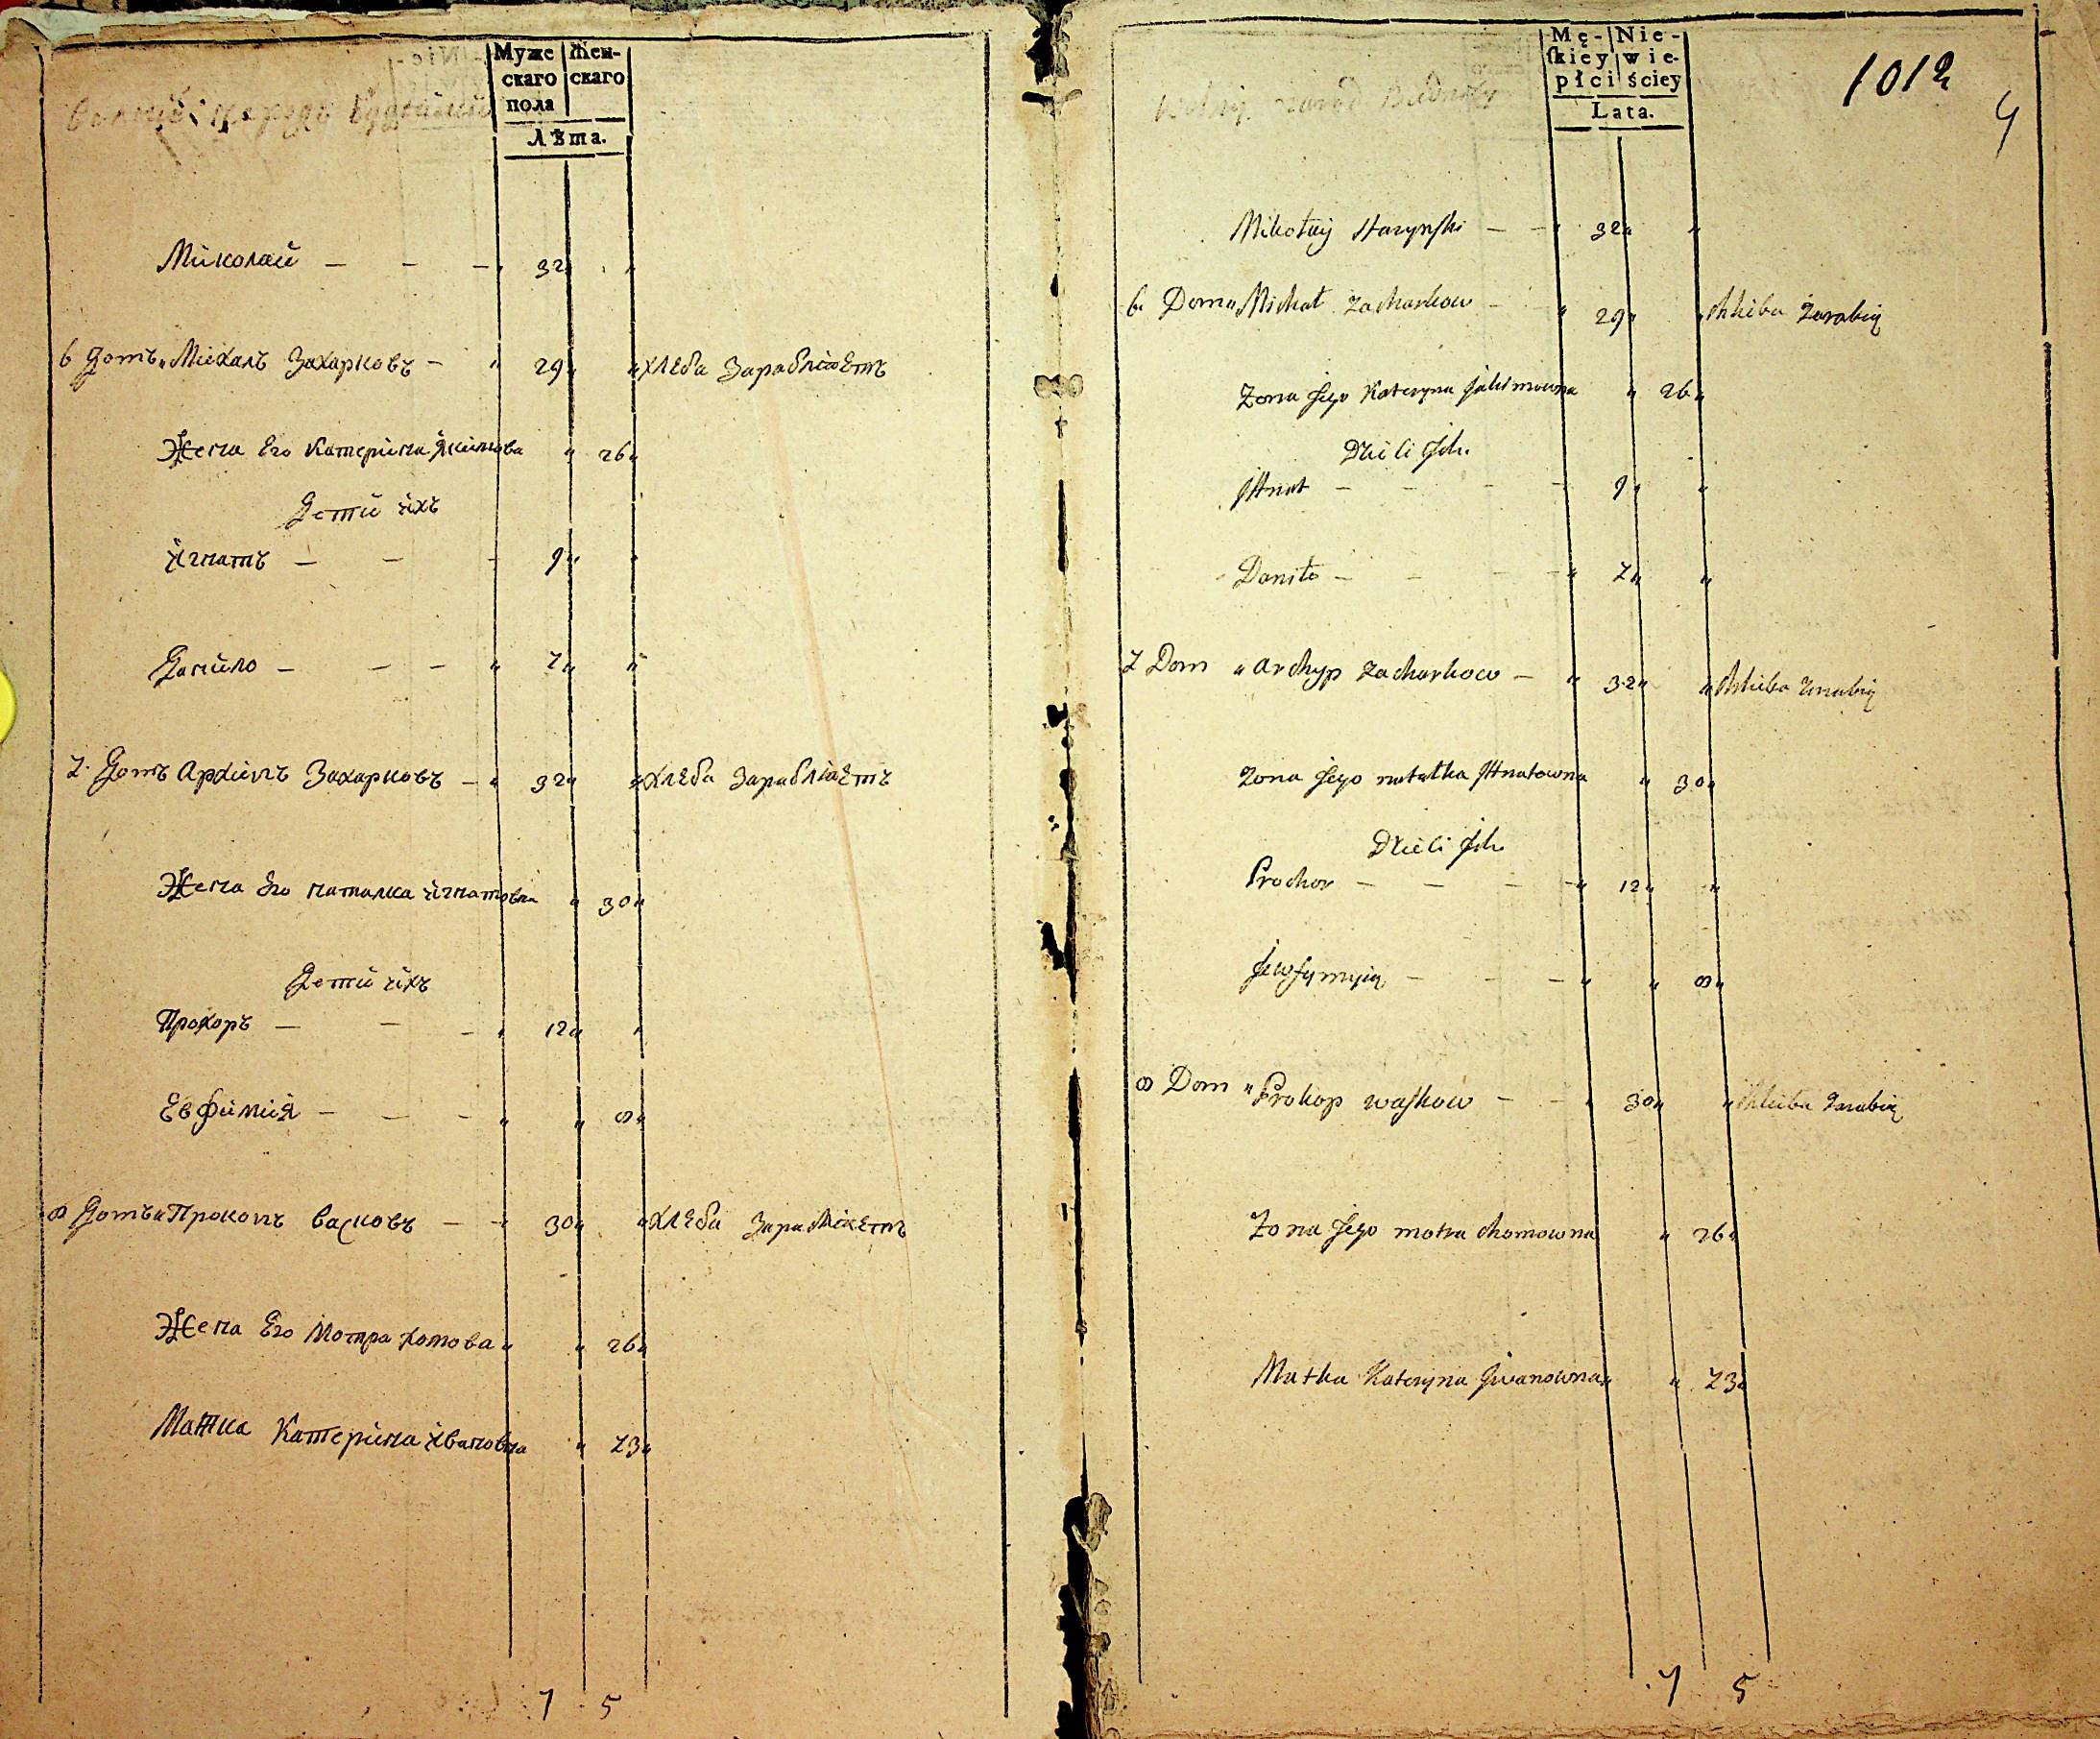 Муже Жен-
скаго скаго
пола
Лѣта.
Миколай — — — „ 32 „ „
6 Домъ „ Михалъ Захарковъ — „ 29 „ „ хлеба Зарабляетъ
Жена Его Катерина Якимова „ 26 „
Дети ихъ
Игнатъ — — — 9 „ „
Данило — — — „ 7 „ „
7. Домъ Архипъ Захарковъ — „ 32 „ „ хлеба Зарабляетъ
Жена Его наталка игнатовна „ 30 „
Дети ихъ
Прохоръ — — — „ 12 „ „
Евфимия — — — „ „ 8 „
8 Домъ „ Прокопъ васковъ — — 30 „ „ хлеба Зарабляетъ
Жена Его Мотра хомова „ „ 26 „
Матка Катерина ивановна „ 73 „
7 5
Mę- Nie-
ſkiey wie-
płci ściey
Lata.
1012
4
wolny narod
Mikołay — — „ 32 „ „
6. Dom „ Michał Zacharkow — „ 29 „ „ chleba Zarabią
Zona Jego Kateryna Jakimowna „ 26 „
Dzieci Jch.
JHnat — — — — 9 „ „
Daniło — — — — „ 7 „ „
7 Dom „ Archyp Zacharkow — „ 32 „ „ chleba Zarabią
Zona Jego natalka JHnatowna „ 30 „
Dzieci Jch.
Prochor — — — — „ 12 „ „
Jewfymyia — — — „ „ 8 „
8 Dom „ Prokop waſkow — — „ 30 „ „ chleba Zarabią
Zona Jego motra chomowna „ 26 „
Matka Kateryna Jwanowna „ „ 73 „
7 5